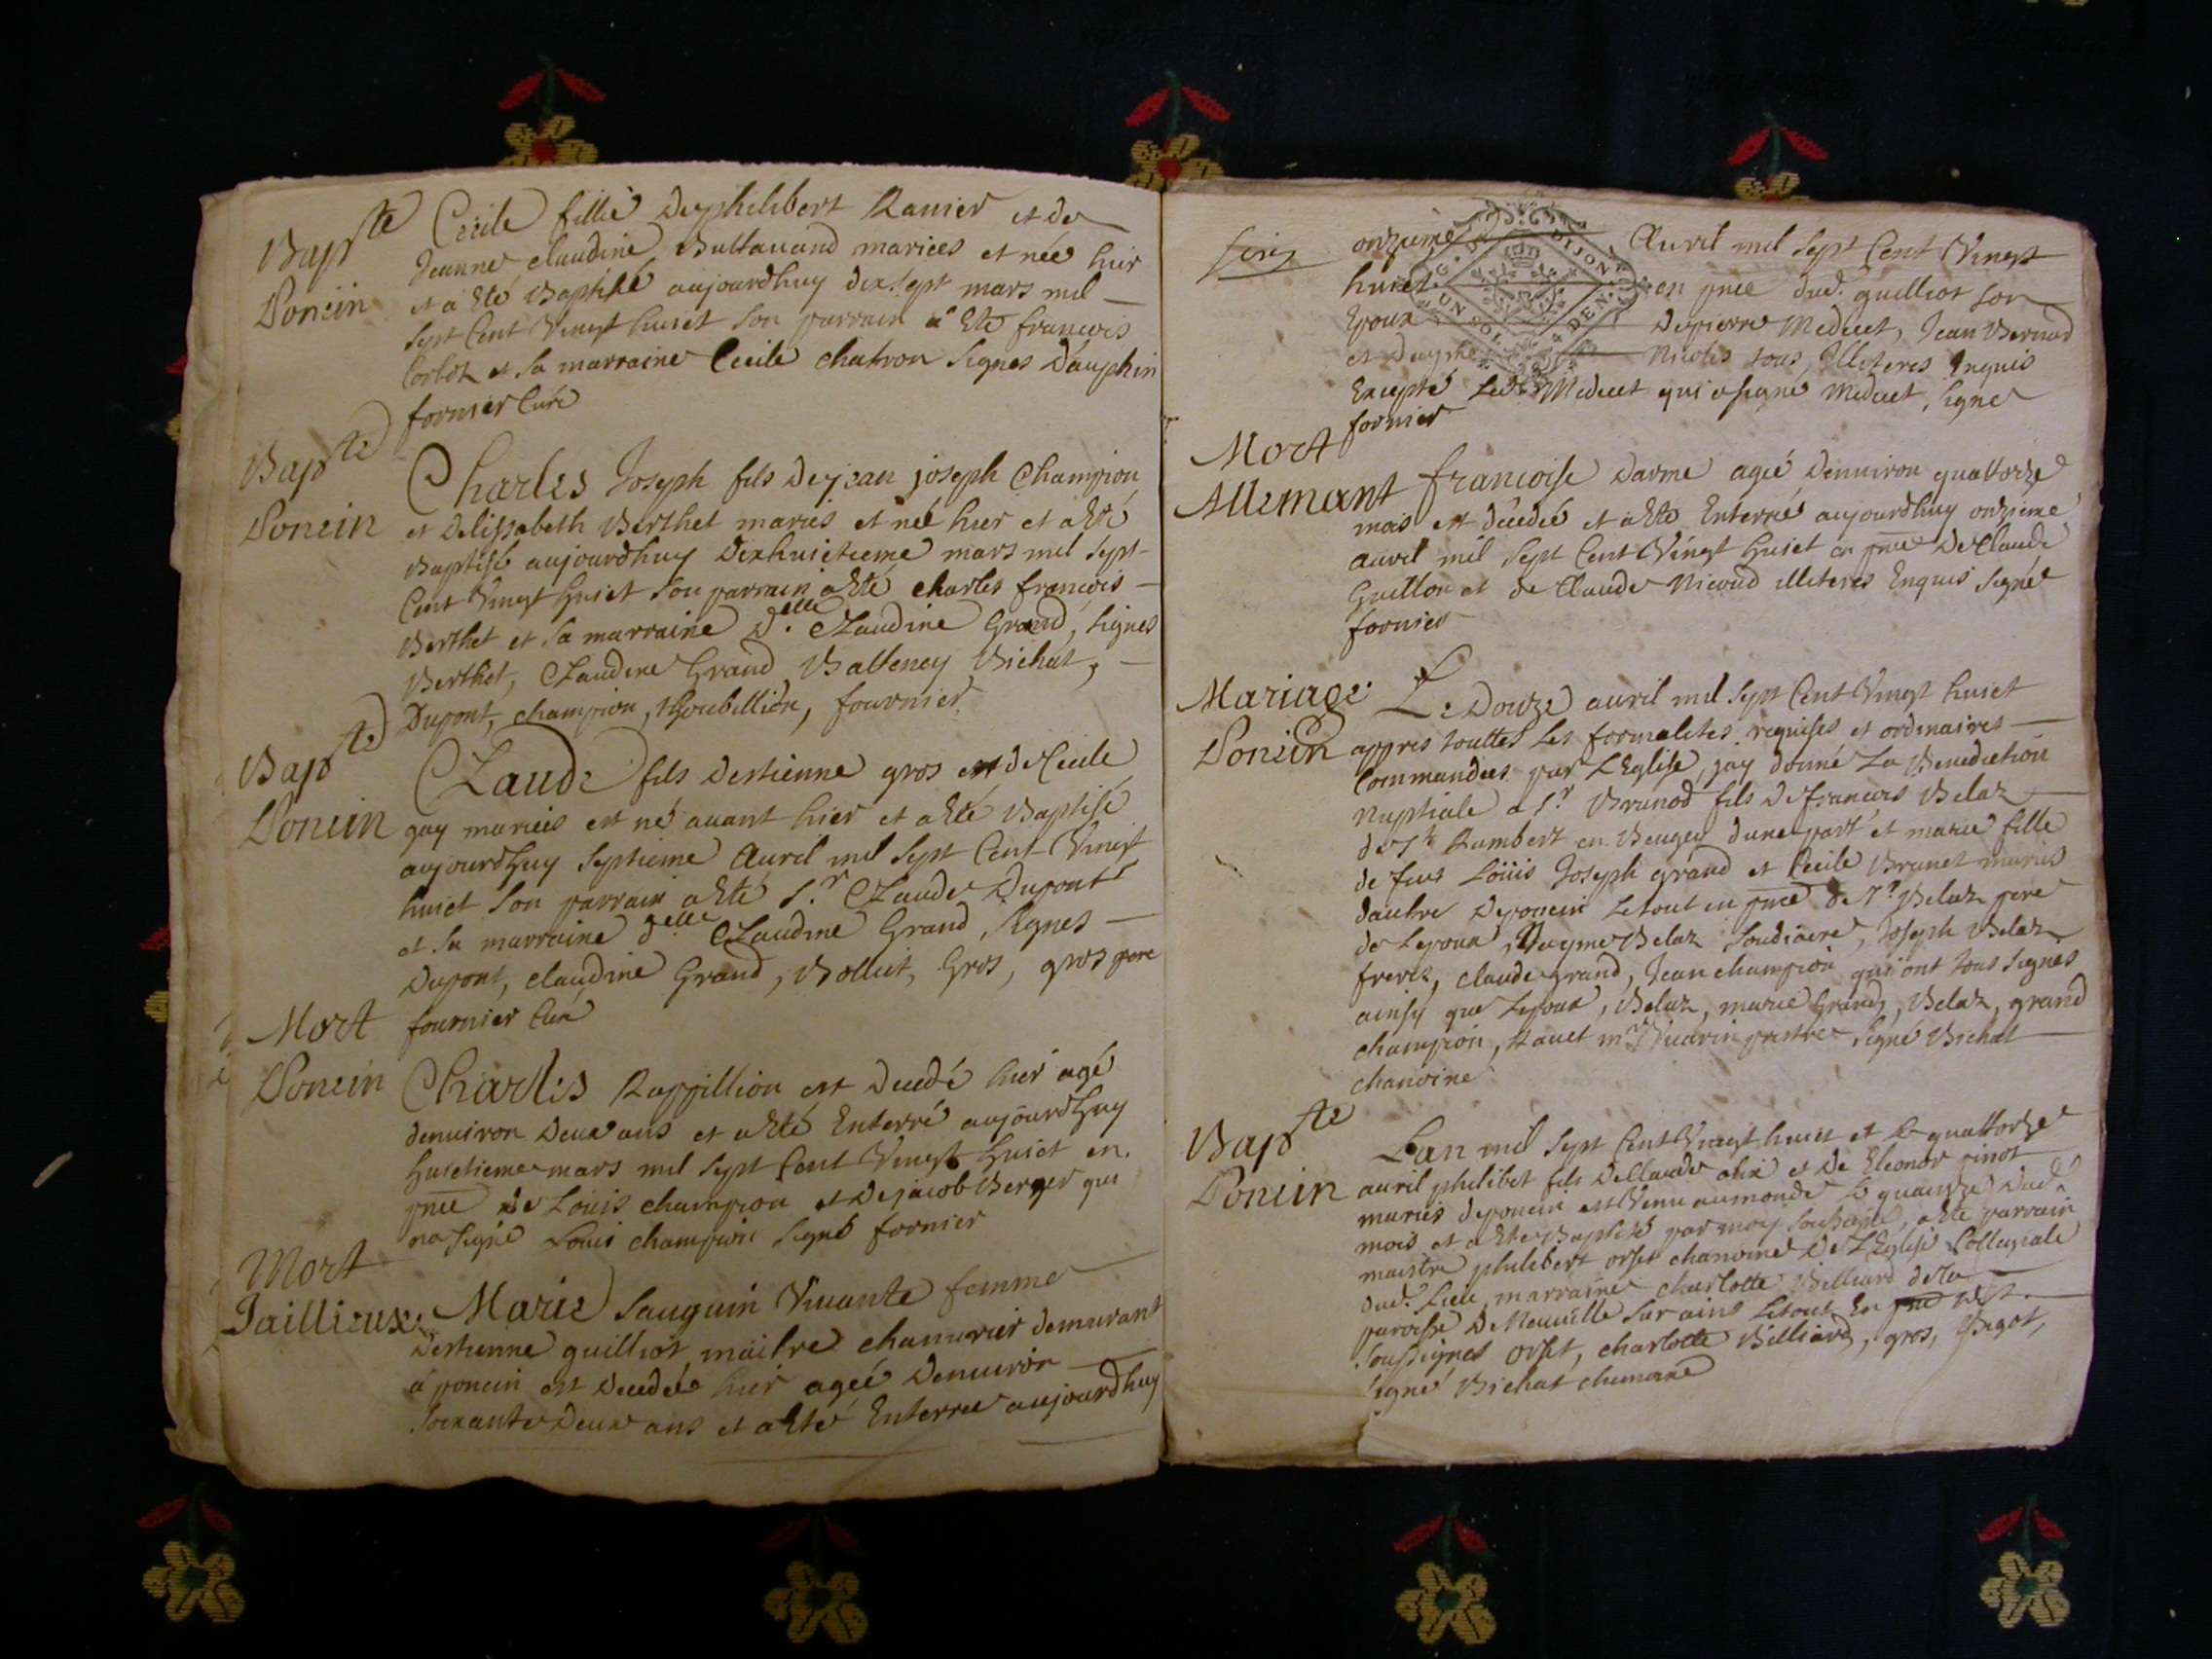 Bapte
Poncin
Cécile fillie de philibert Ranier et de
Jeanne claudine Bullauand mariees et née hier
et a Eté Baptisé aujourdhuy dixsept mars mil
sept Cent Vingt huict son parrain a Eté francois
et sa marraine Cecile chatron signes Dauphin
fornier Curé
Bapte
Poncin
Charles Joseph fils de jean joseph Champion
et delissabeth Berthet mariés et né hier et a Eté
Baptisé aujourdhuy dixhuictieme mars mil sept
Cent Vingt huict son parrain a Eté charles francois
Berthet et sa marraine d.elle Claudine Grand, signes
Berthet, Claudine Grand, Balleney Bichat,
Dupont, champion, fournier
Bapte
Poncin
Claude fils destienne gros et de Cecile
guy mariés est né auant hier et a Eté Baptisé
aujourdhuy septieme Auril mil sept Cent Vingt
huict son parrain a Eté s.r Claude Dupont
et sa marraine d.elle Claudine Grand, signes
Dupont, claudine Grand, Bolliet, Gros, gros pere
fournier Curé
Mort
Poncin
Charles Rappillion est decedé hier agé
denuiron deux ans et a Eté Enterré aujourdhuy
huictieme mars mil sept Cent Vingt huict en
pnce de Louis champion et de jacob Berger qui
na signé Louis champion signé fornier
Mort
Jaillieux
Marie sauguin Viuante femme
destienne guilliot maitre chamurier demurant
a poncin est decedée hier agée denuiron
soixante deux ans et a Eté Enterree aujourdhuy
onzieme Auril mil sept Cent Vingt
huict en pnce dud. guilliot son
Epoux de pierre Mediet, Jean Bernard
et Nicoles tous Illiteres Enquis
Excepté Led. Mediet qui a signé Mediet, signé
fornier
Mort
Allemant
francoise darme agée denuiron quattorze
mois est décedée et a Eté Enterrée aujourdhuy onzieme
auril mil sept Cent Vingt huict en pnce de Claude
Guillon et de Claude Nicoud illiteres Enquis signé
fornier
Mariage
Poncin
Le Douze auril mil sept Cent Vingt huict
appres touttes Les formalites requises et ordinaires
Commandees par LEglise, jay donné La Benediction
Nuptiale a s.r Brunod fils de francois Belaz
de st Rambert en Beugey dune part et marie fille
de feus Loüis Joseph grand et Cecile Brunet mariés
dautre de poncin Le tout en pnce de s.r Belaz pere
de Lepoux, Aayme Belaz soudiacre, Joseph Belaz
freres, claude grand, Jean champion qui ont tous signés
ainsy que Lepoux, Belaz, marie Grand, Belaz, grand
champion, Rauet prestre signé Bichat
chanoine
Bapte
Poncin
Lan mil sept Cent Vingt huict et le quattorze
auril philibet fils de Claude alix et de Eleonor pinot
mariés de poncin est Venu au monde le quatorze dud.
mois et a Eté Baptisé par moy soussigné, a Eté parrain
maistre philibert orset chanoine de LEglise Collegiale
dud. Lieu marraine charlotte Billiard de la
paroisse de Neuuille sur ains Le tout En pnce des
soussignes orset, charlotte Billiard, gros, Bagot,
signé Bichat chanoine